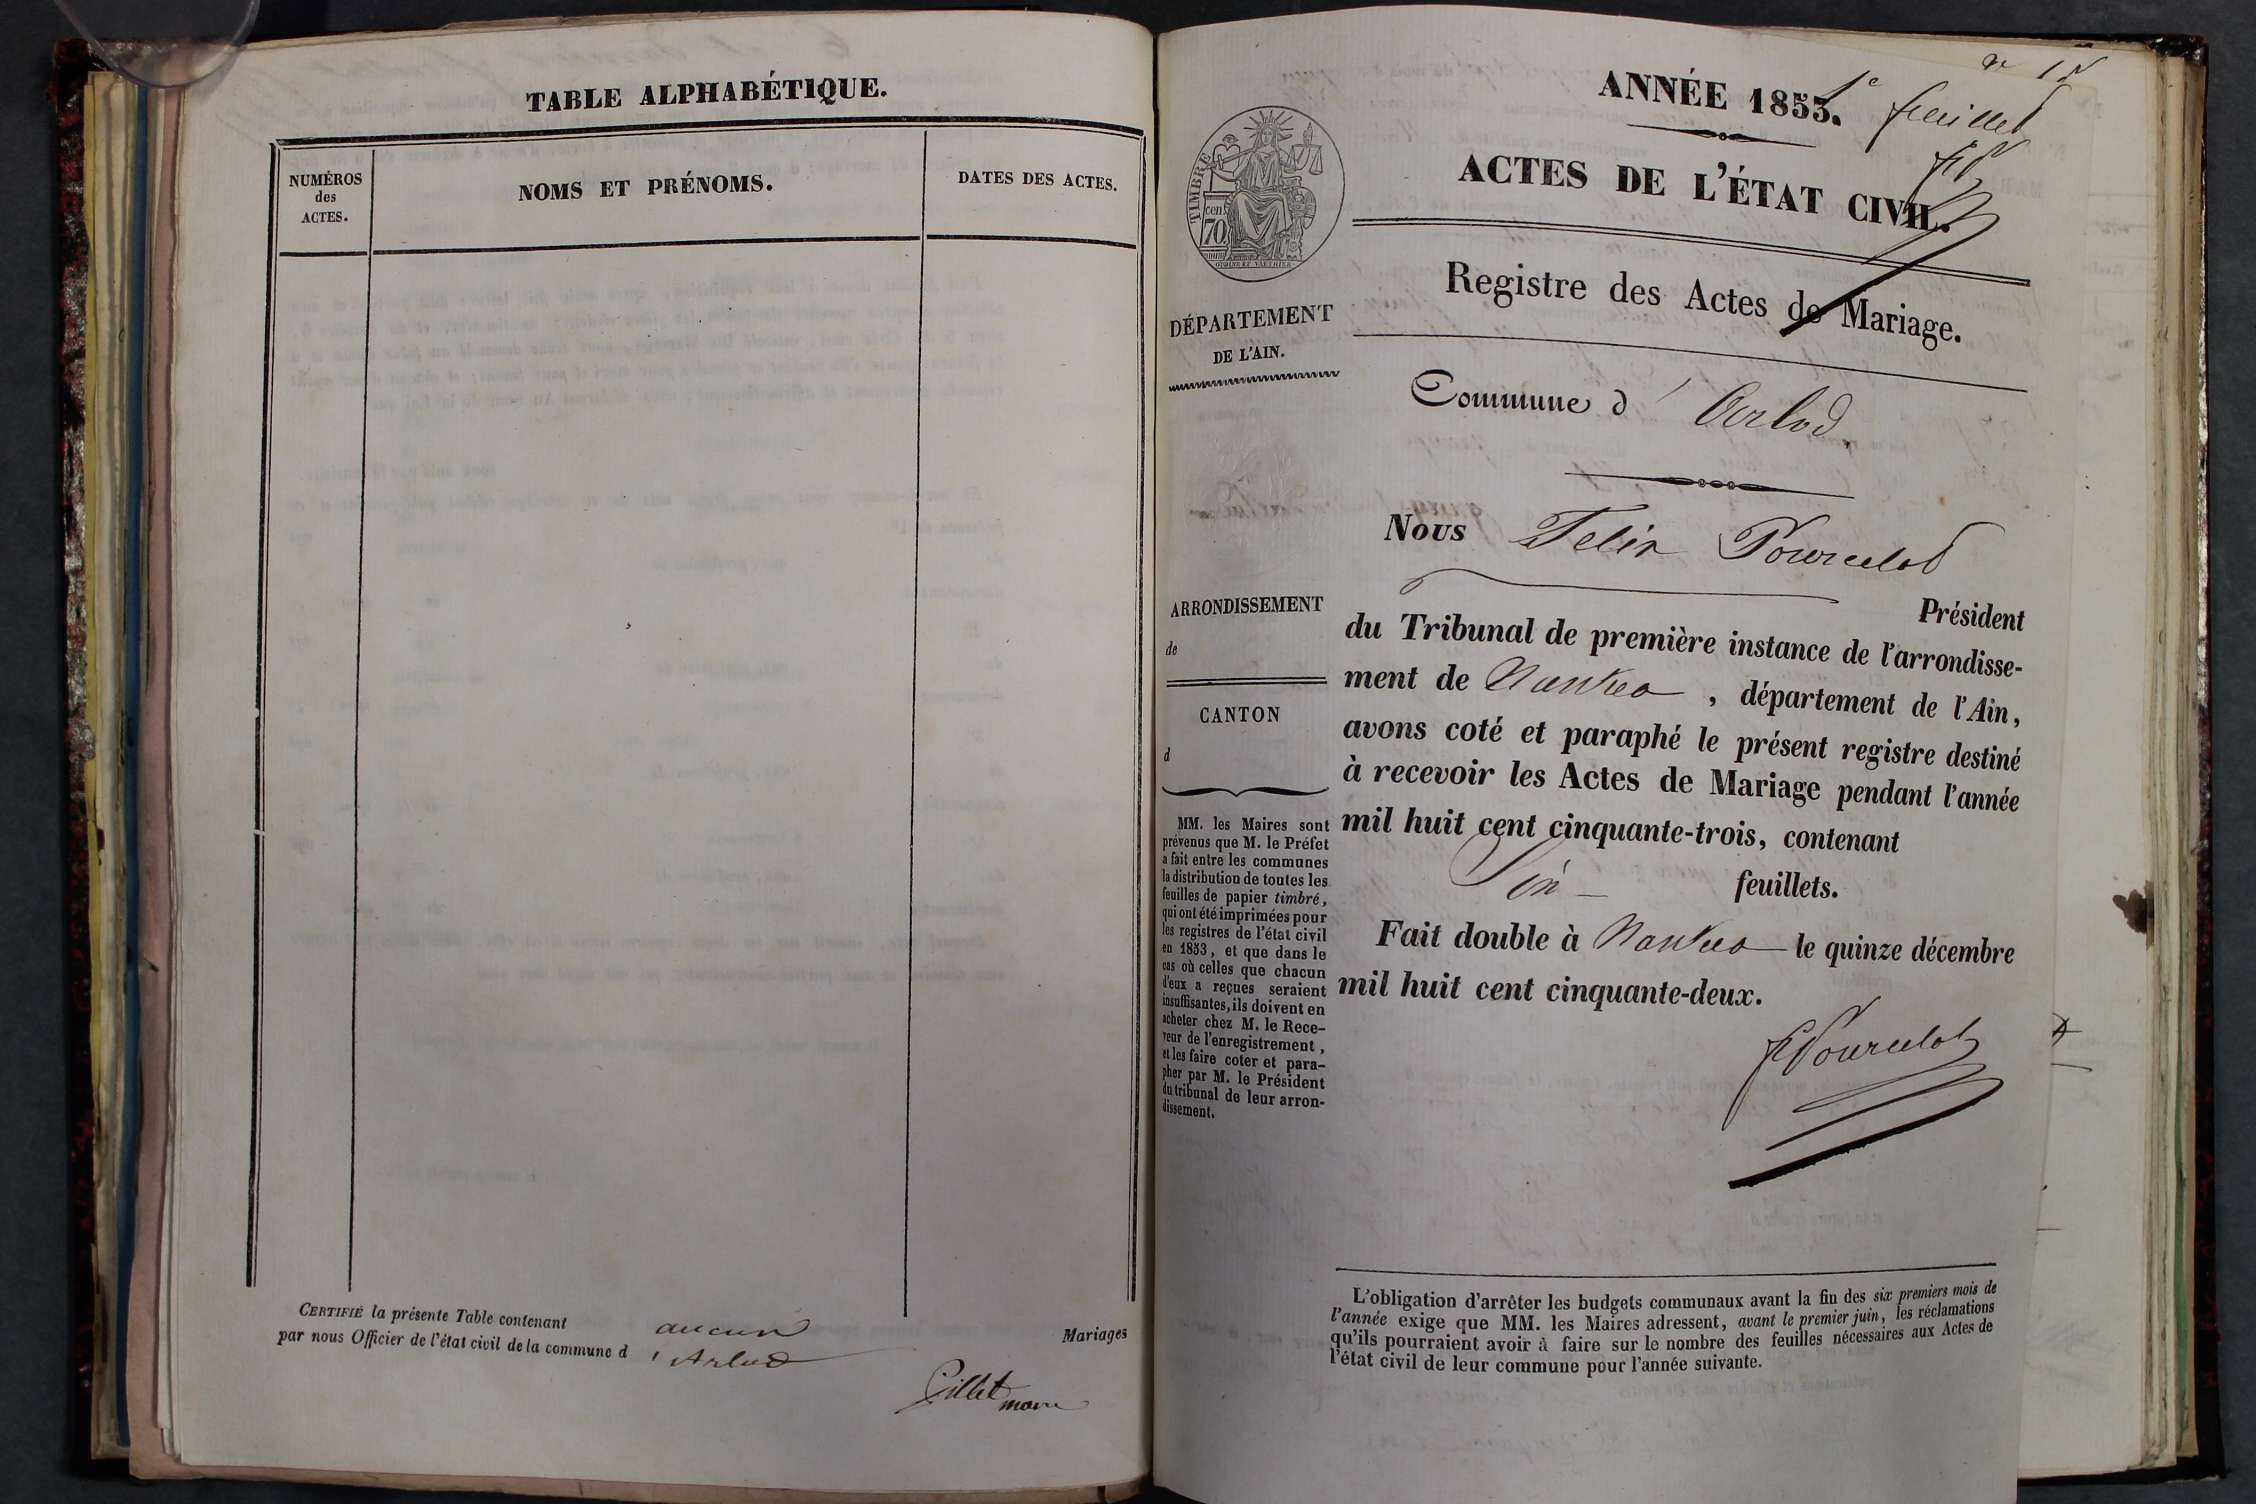 TABLE ALPHABÉTIQUE.
NUMÉROS
des
ACTES.
NOMS ET PRÉNOMS.
DATES DES ACTES.
CERTIFIÉ la présente Table contenant aucun Mariages
par nous Officier de l'état civil de la commune d'Arlod
Gillet
maire
1e feuillet
ANNÉE 1853.
ACTES DE L'ÉTAT CIVIL.
TIMBRE
cen.
70
Registre des Actes de Mariage.
DÉPARTEMENT
DE L'AIN.
Commune d'Arlod
Nous Felix Pourcelot
Président
du Tribunal de première instance de l'arrondisse-
ment de Nantua, département de l'Ain,
avons coté et paraphé le présent registre destiné
à recevoir les Actes de Mariage pendant l'année
mil huit cent cinquante-trois, contenant
Six feuillets.
Fait double à Nantua le quinze décembre
mil huit cent cinquante-deux.
FPourcelot
ARRONDISSEMENT
de
CANTON
d
MM. les Maires sont
prévenus que M. le Préfet
a fait entre les communes
la distribution de toutes les
feuilles de papier timbré,
qui ont été imprimées pour
les registres de l'état civil
en 1853, et que dans le
cas où celles que chacun
d'eux a reçues seraient
insuffisantes, ils doivent en
acheter chez M. le Rece-
veur de l'enregistrement,
et les faire coter et para-
pher par M. le Président
du tribunal de leur arron-
dissement.
L'obligation d'arrêter les budgets communaux avant la fin des six premiers mois de
l'année exige que MM. les Maires adressent, avant le premier juin, les réclamations
qu'ils pourraient avoir à faire sur le nombre des feuilles nécessaires aux Actes de
l'état civil de leur commune pour l'année suivante.